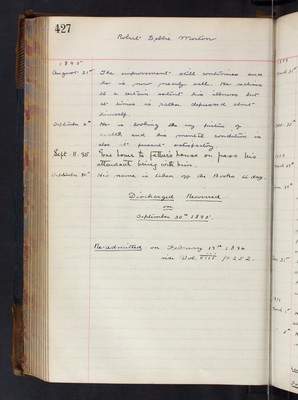 427
Robert Gebbie Morton
1895
August 21st The improvement still continues and
he is now nearly well. He
to a certain extent his illness but
at times is rather depressed about
himself.
September 6th He is looking the very picture of
health and his mental condition is
also at present satisfactory.
Sept. 11. 95 Gone home to father's house on pass his
attendant being with him.
September 30th His name is taken off the Books to-day.
Discharged Recovered
on
September 30th 1895.
Re-admitted on February 17th 1896
vide Vol. XIII p. 252.